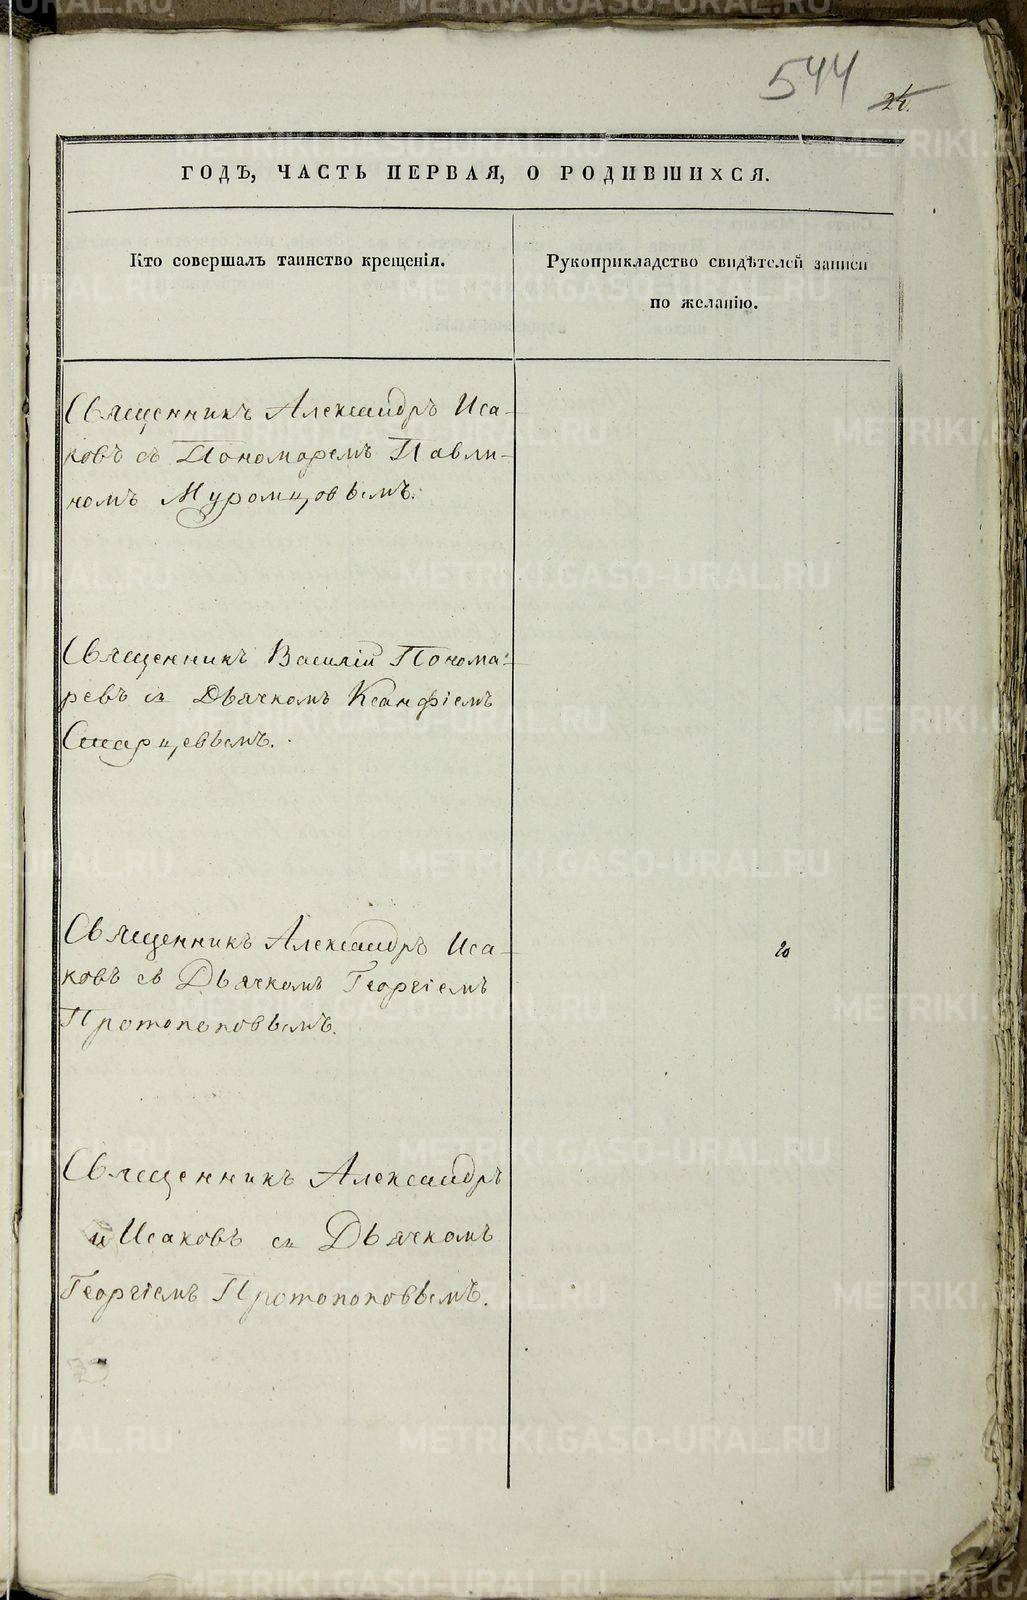 544
24.
ГОДЪ, ЧАСТЬ ПЕРВАЯ, О РОДИВШИХСЯ.
Кто совершалъ таинство крещенія.
Рукоприкладство свидѣтелей записи
по желанію.
Священникъ Александръ Иса-
ковъ съ Пономаремъ Павли-
номъ Муромцовымъ.
Священникъ Василій Понома-
ревъ съ Дьячкомъ Ксанфіемъ
Старцевымъ.
Священникъ Александръ Иса-
ковъ съ Дьячкомъ Георгіемъ
Протопоповымъ.
20
Священникъ Александръ
Исаковъ съ Дьячкомъ
Георгіемъ Протопоповымъ.
METRIKI.GASO-URAL.RU